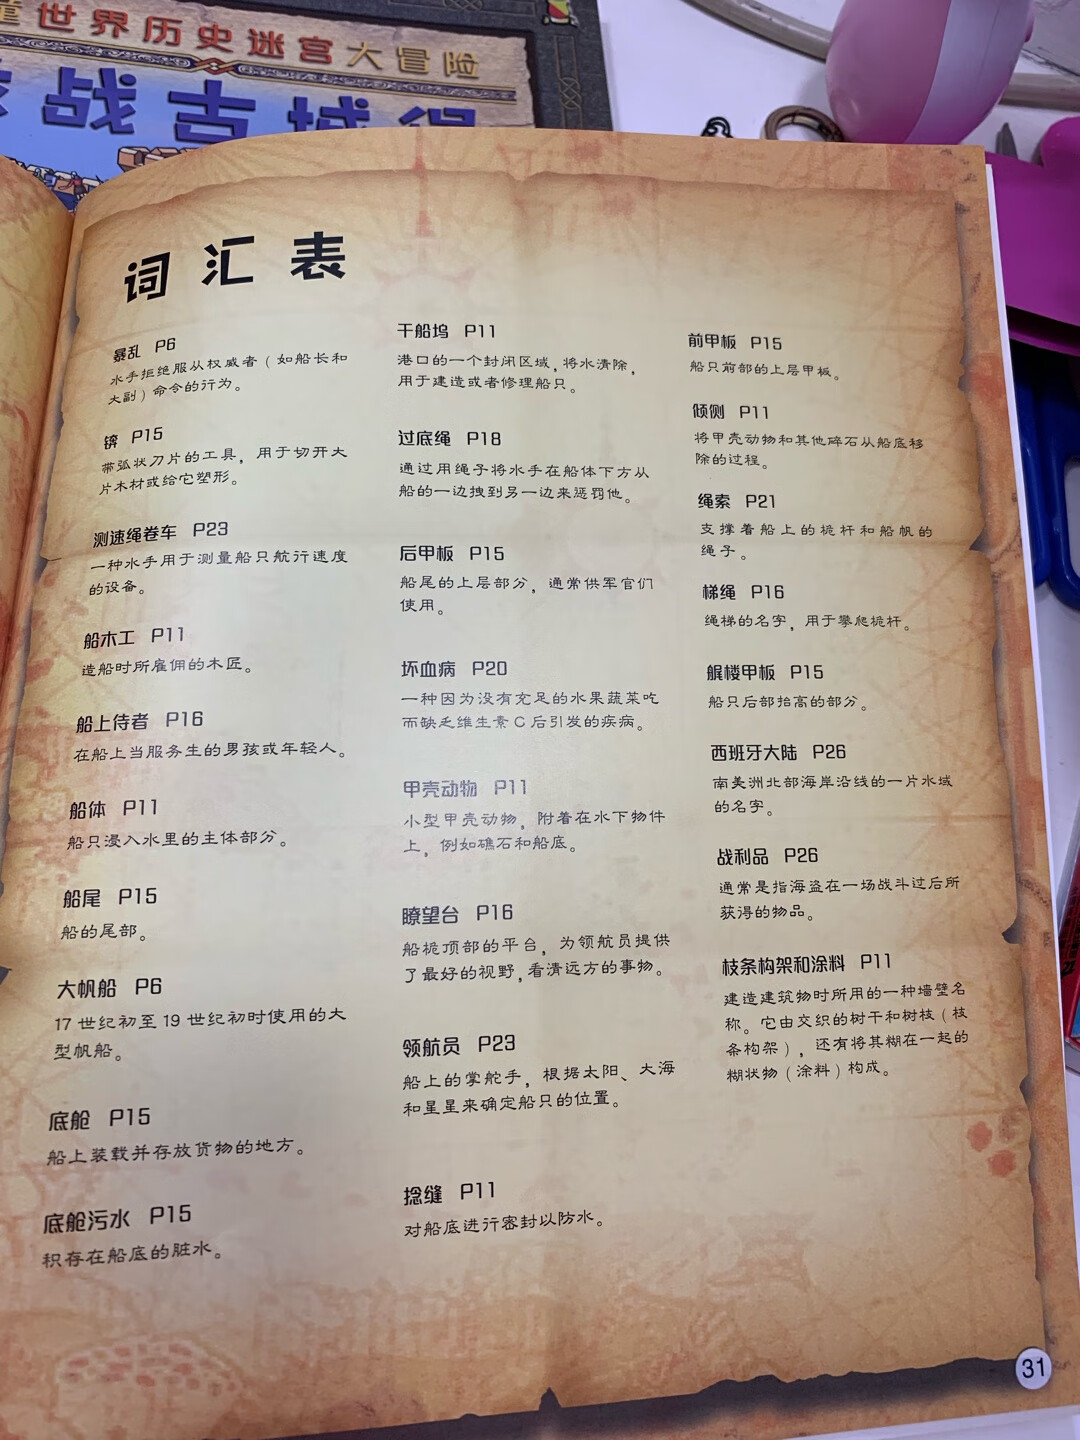 世界历史迷宫大冒险
战古城堡
词汇表
暴乱 P6
水手拒绝服从权威者（如船长和
大副）命令的行为。
锛 P15
带弧状刀片的工具，用于切开大
片木材或给它塑形。
测速绳卷车 P23
一种水手用于测量船只航行速度
的设备。
船木工 P11
造船时所雇佣的木匠。
船上侍者 P16
在船上当服务生的男孩或年轻人。
船体 P11
船只浸入水里的主体部分。
船尾 P15
船的尾部。
大帆船 P6
17 世纪初至 19 世纪初时使用的大
型帆船。
底舱 P15
船上装载并存放货物的地方。
底舱污水 P15
积存在船底的脏水。
干船坞 P11
港口的一个封闭区域，将水清除，
用于建造或者修理船只。
过底绳 P18
通过用绳子将水手在船体下方从
船的一边拽到另一边来惩罚他。
后甲板 P15
船尾的上层部分，通常供军官们
使用。
坏血病 P20
一种因为没有充足的水果蔬菜吃
而缺乏维生素 C 后引发的疾病。
甲壳动物 P11
小型甲壳动物，附着在水下物件
上，例如礁石和船底。
瞭望台 P16
船桅顶部的平台，为领航员提供
了最好的视野，看清远方的事物。
领航员 P23
船上的掌舵手，根据太阳、大海
和星星来确定船只的位置。
捻缝 P11
对船底进行密封以防水。
前甲板 P15
船只前部的上层甲板。
倾侧 P11
将甲壳动物和其他碎石从船底移
除的过程。
绳索 P21
支撑着船上的桅杆和船帆的
绳子。
梯绳 P16
绳梯的名字，用于攀爬桅杆。
艉楼甲板 P15
船只后部抬高的部分。
西班牙大陆 P26
南美洲北部海岸沿线的一片水域
的名字。
战利品 P26
通常是指海盗在一场战斗过后所
获得的物品。
枝条构架和涂料 P11
建造建筑物时所用的一种墙壁名
称。它由交织的树干和树枝（枝
条构架），还有将其糊在一起的
糊状物（涂料）构成。
31